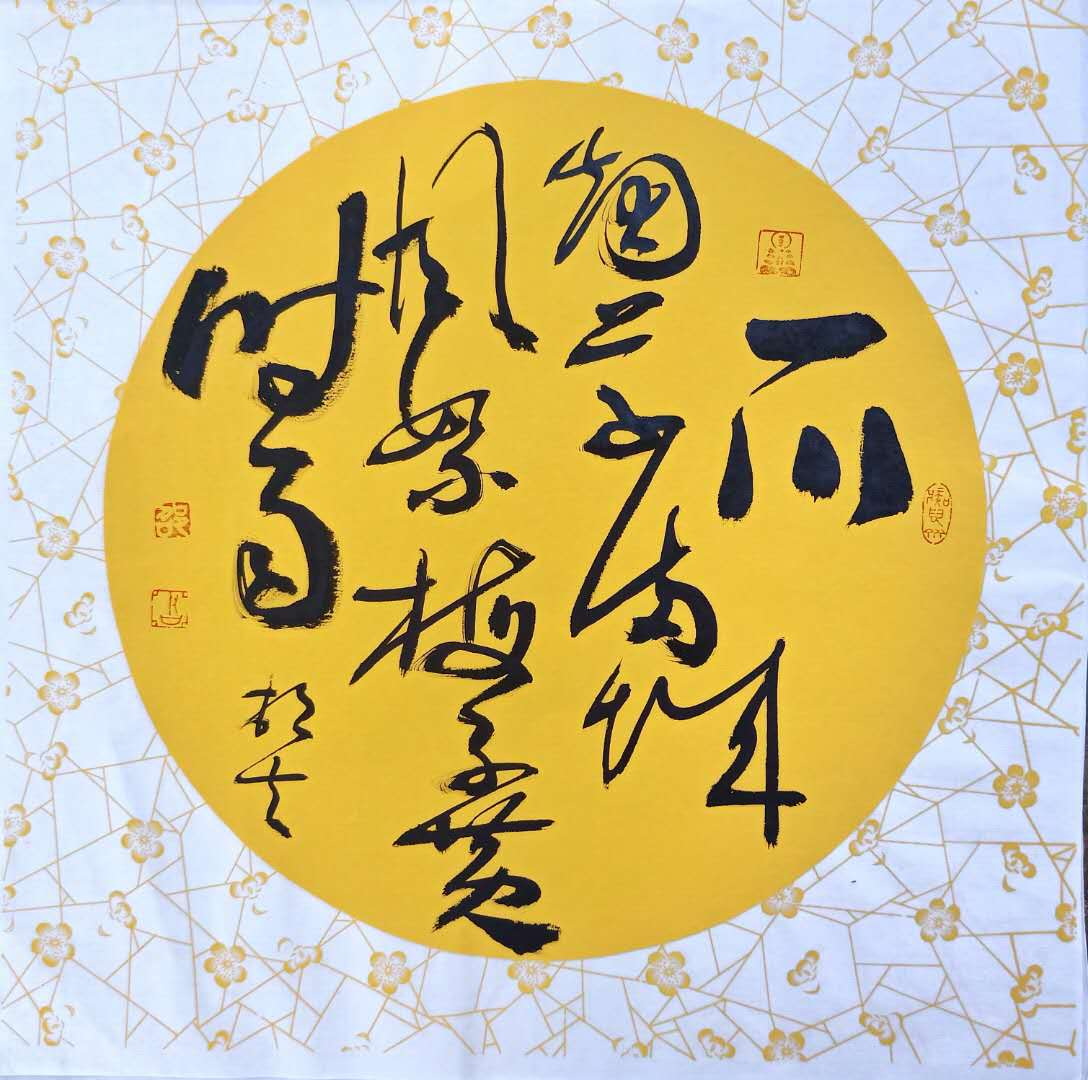 一川
烟草满城
风絮梅子黄
时雨